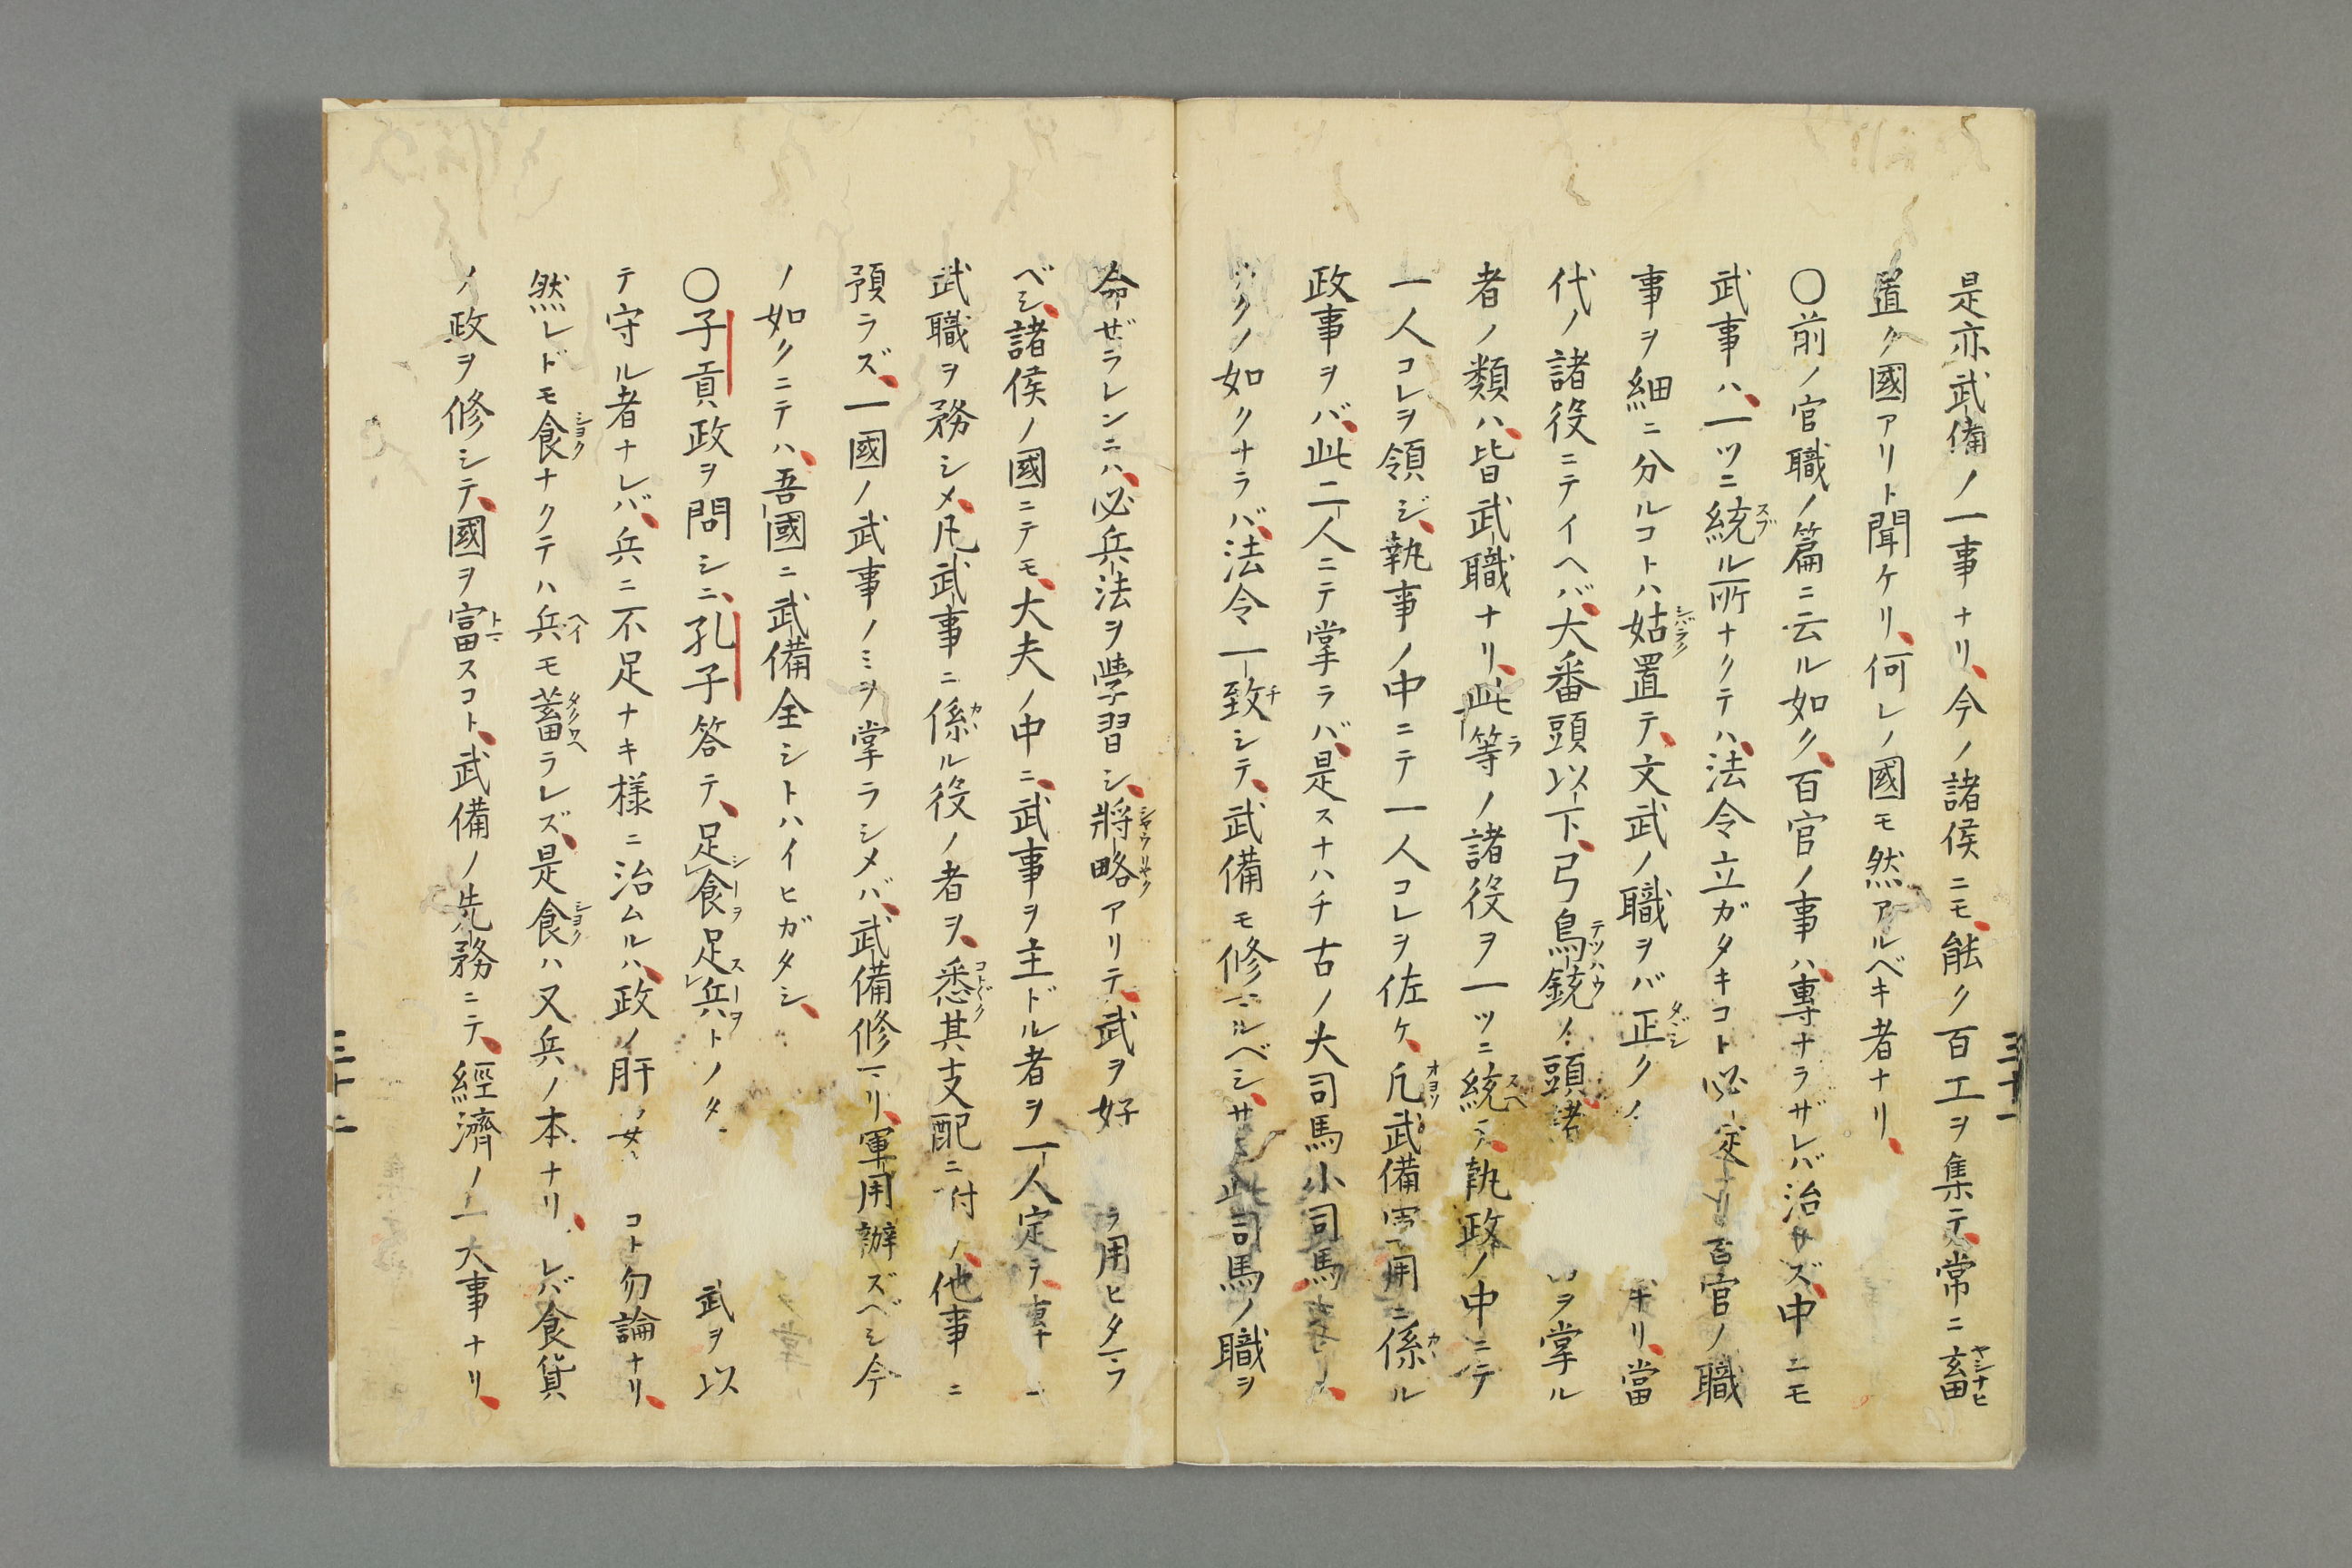 是亦武備ノ一事ナリ、今ノ諸侯ニモ、能ク百工ヲ集テ、常ニ畜
置ク國アリト聞ケリ、何レノ國モ然アルベキ者ナリ、
〇前ノ官職ノ篇ニ云ル如ク、百官ノ事ハ、專ナラザレバ治ラズ、中ニモ
武事ハ、一ツニ統ル所ナクテハ、法令立ガタキコト必定ナリ百官ノ職
事ヲ細ニ分ルコトハ姑置テ、文武ノ職ヲバ正ク キリ、當
代ノ諸役ニテイヘバ、大番頭以下、弓鳥銃ノ頭、諸 ヲ掌ル
者ノ類ハ、皆武職ナリ、此等ノ諸役ヲ一ツニ統テ、執政ノ中ニテ
一人コレヲ領ジ、執事ノ中ニテ一人コレヲ佐ケ、凡武備軍用ニ係ル
政事ヲバ、此二人ニテ掌ラバ、是スナハチ古ノ大司馬小司馬
カクノ如クナラバ、法令一致シテ、武備モ修マルベシ、サテ此司馬ノ職ヲ
三十一
命ゼラレンニハ、必兵法ヲ學習シ、將略アリテ、武ヲ好 ヲ用ヒタマフ
ベシ、諸侯ノ國ニテモ、大夫ノ中ニ、武事ヲ主ドル者ヲ一人定テ、專ニ
武職ヲ務シメ、凡武事ニ係ル役ノ者ヲ、悉其支配ニ付ケ、他事ニ
預ラズ、一國ノ武事ノミヲ掌ラシメバ、武備修マリ、軍用辦ズベシ今
ノ如クニテハ、吾國ニ武備全シトハイヒガタシ、
〇子貢政ヲ問シニ、孔子答テ、足食足兵トノタ 武ヲ以
テ守ル者ナレバ、兵ニ不足ナキ樣ニ治ムルハ、政ノ肝要 コト勿論ナリ、
然レドモ食ナクテハ兵モ蓄ラレズ、是食ハ又兵ノ本ナリ、 レバ食貨
ノ政ヲ修シテ、國ヲ富スコト、武備ノ先務ニテ、經濟ノ一大事ナリ、
三十二